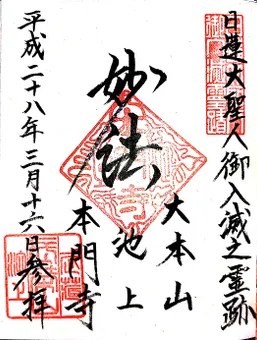 日蓮大聖人御入滅之霊跡
大本山
池上
妙法
本門寺
平成二十八年三月十六日参拝